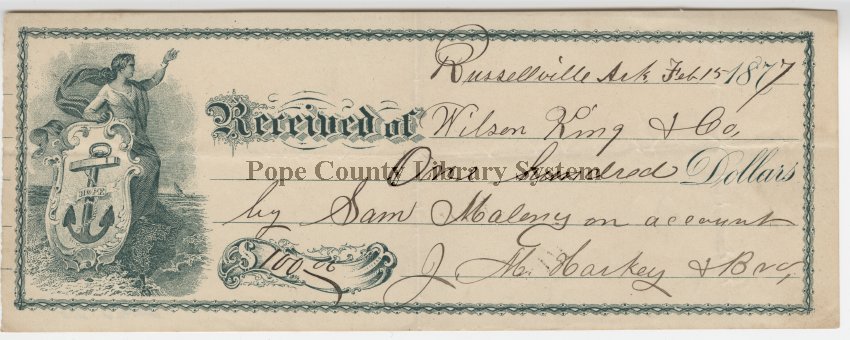 Russellville Ark, Feb 15 1877
Received of Wilson King & Co,
One hundred Dollars
Pope County Library System
by Sam Maloney on account
HOPE
$100.00 J M. Harkey & Bro,